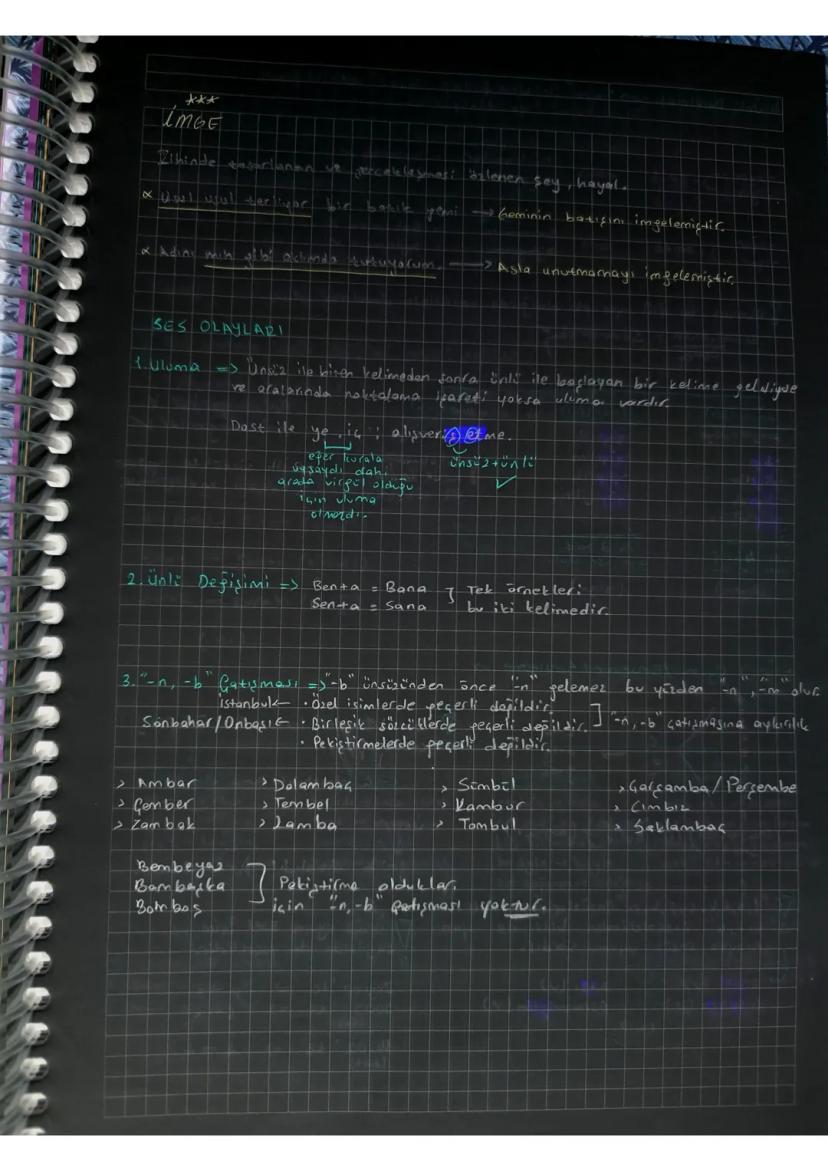 ***
İMGE
Zihinde tasarlanan ve gerçekleşmesi özlenen şey, hayal.
∝ Usul usul terliyor bir batık gemi → Geminin batışını imgelemiştir.
∝ Adını mıh gibi aklımda tutuyorum → Asla unutmamayı imgelemiştir.
SES OLAYLARI
1. Uluma => Ünsüz ile biten kelimeden sonra ünlü ile başlayan bir kelime geldiyse
ve aralarında noktalama işareti yoksa uluma vardır.
Dost ile ye, iç ; alışveriş etme.
eğer kurala
uysaydı dahi
arada virgül olduğu
için uluma
olmazdı.
ünsüz+ünlü
✓
2. Ünlü Değişimi => Ben+a = Bana } Tek örnekleri
Sen+a = Sana bu iki kelimedir.
3. "-n, -b" Çatışması => "-b" ünsüzünden önce "-n" gelemez bu yüzden "-n", "-m" olur.
İstanbul ← • Özel isimlerde geçerli değildir.
Sonbahar/Onbaşı ← • Birleşik sözcüklerde geçerli değildir. ] "-n, -b" çatışmasına aykırılık
• Pekiştirmelerde geçerli değildir.
> Ambar > Dolambaç > Sümbül > Çarşamba / Perşembe
> Çember > Tembel > Kambur > Cımbız
> Zambak > Lamba > Tombul > Saklambaç
Bembeyaz
Bambaşka ] Pekiştirme oldukları
Bomboş için "-n, -b" çatışması yoktur.